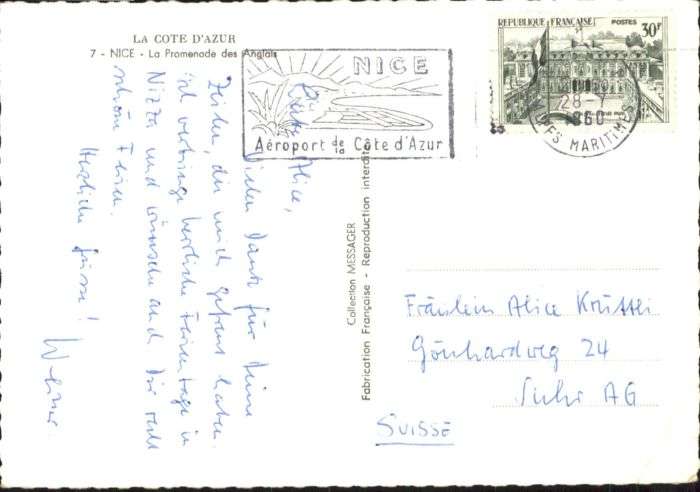 LA COTE D'AZUR
7 - NICE - La Promenade des Anglais
NICE
Aéroport de la Côte d'Azur
REPUBLIQUE FRANÇAISE POSTES
30F
28-7
1960
ES MARITIMES
Alice,
Vielen Dank für Deine
Zeilen, die mich gefreut haben.
Ich verbringe herrliche Ferientage in
Nizza und wünsche auch Dir recht
schöne Ferien.
Herzliche Grüsse!
Werner
Collection MESSAGER
Fabrication Française - Reproduction interdite
Fräulein Alice
Gönhardweg 24
Suhr AG
SUISSE